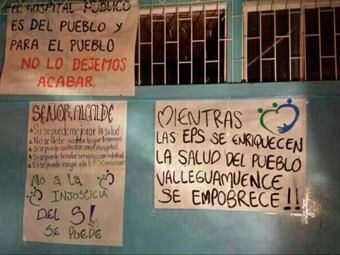 EL HOSPITAL PÚBLICO
ES DEL PUEBLO Y
PARA EL PUEBLO
NO LO DEJEMOS
ACABAR.
SEÑOR ALCALDE
Si se puede mejorar la salud
No se
Si se puede contratar con el Hospital
Si se puede brindar servicios con calidad
Si se puede exigir a la EPS
NO A LA
INJUSTICIA
DEL SI
SE PUEDE
MIENTRAS
LAS EPS SE ENRIQUECEN
LA SALUD DEL PUEBLO
VALLEGUAMUENCE
SE EMPOBRECE!!